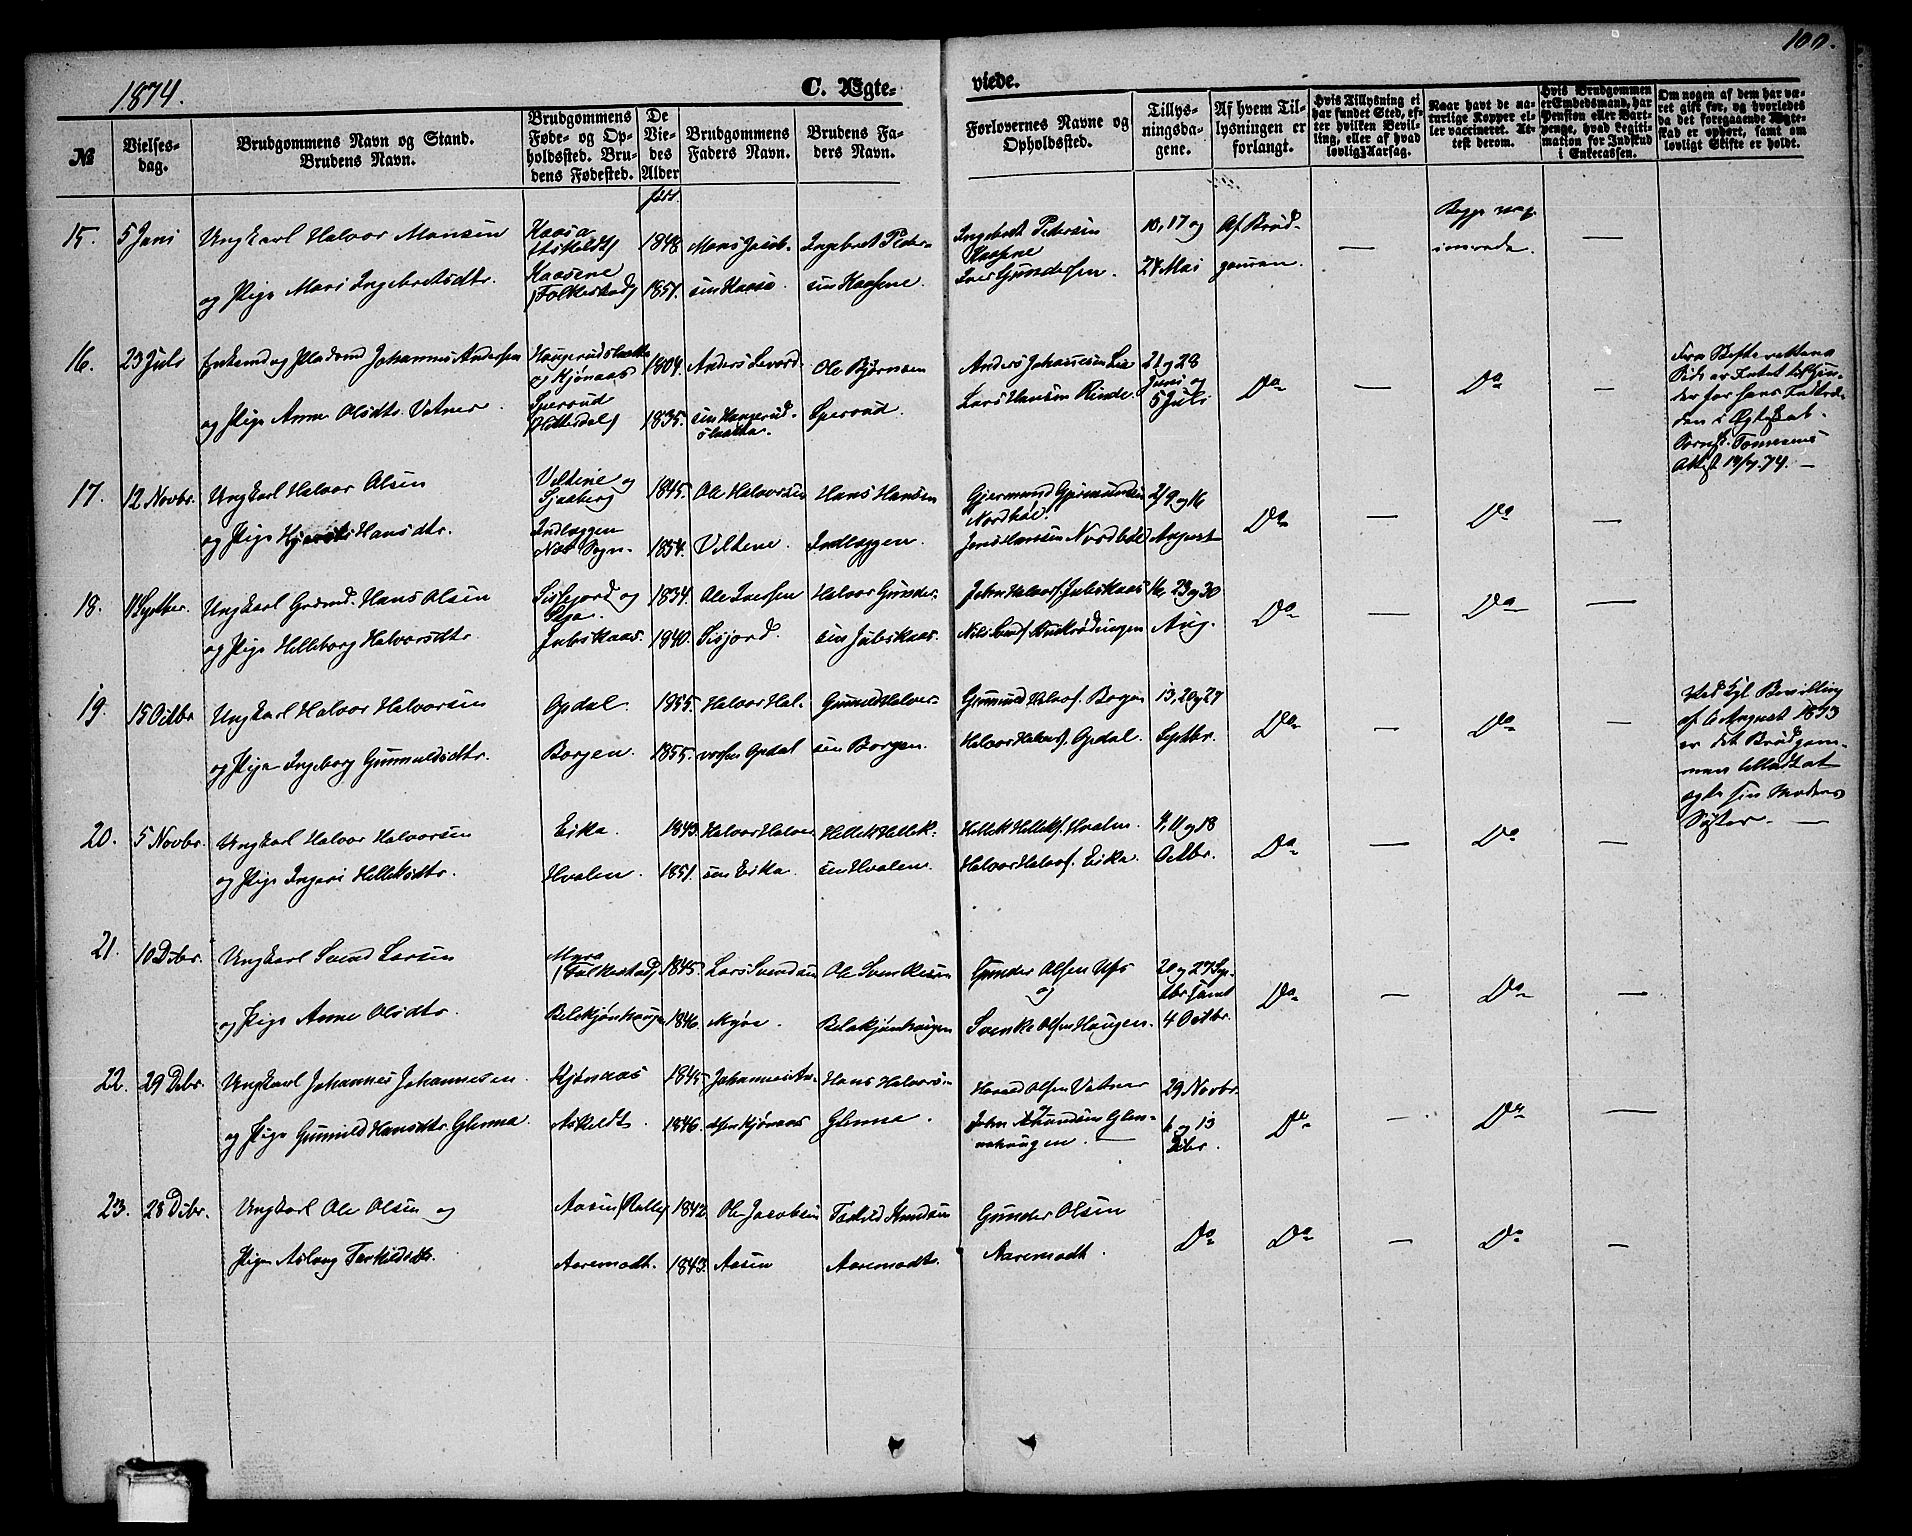 100.
1874.
C. Ægte-
viede.
№
Vielses-
dag.
Brudgommens Navn og Stand.
Brudens Navn.
Brudgommens
Føde- og Op-
holdssted. Bru-
dens Fødested.
De
Vie-
des
Alder
Brudgommens
Faders Navn.
Brudens Fa-
ders Navn.
Forlovernes Navne og
Opholdssted.
Tillys-
ningsda-
gene.
Af hvem Til-
lysningen er
forlangt.
Hvis Tillysning ei
har fundet Sted, ef-
ter hvilken Bevil-
ling, eller af hvad
lovlig Aarsag.
Naar havt de na-
turlige Kopper el-
ler vaccineret. At-
test derom.
Hvis Brudgommen
er Embedsmand, har
Pension eller Vart-
penge, hvad Legiti-
mation for Indskud
i Enkecassen.
Om nogen af dem har væ-
ret gift før, og hvorledes
da det foregaaende Ægte-
skab er ophørt, samt om
lovligt Skifte er holdt.
15. 5 Juni Ungkarl Halvor Monsen
og Pige Mari Ingebretsdtr.
Kaasa
Kaasene
(Folkestad)
1848
1851.
Mons Jacob-
sen Kaasa
Ingebret Peder-
sen Kaasene.
Ingebret Pedersen
Kaasene
Iver Gundersen.
10, 17 og
24 Mai
Af Brud-
gommen.
—
Begge
—
16. 23 Juli Enkemd og Pladsmd Johannes Andersen
og Pige Anne Olsdtr. Vatner.
og Kjønaas
Sperrud
(Hitterdal)
1804.
1835.
Anders
Ole Bjørnsen
Sperrud.
Anders Johannesen Lie
Lars Hansen Rinde.
21 og 28
Juni og
5 Juli
Do
—
Do
—
Fra Skifterettens
Side er Intet til Hin-
der for hans Indtræ-
den i Ægteskab.
Attest 14/7.74. —
17. 12 Novbr. Ungkarl Halvor Olsen
og Pige Hansdtr.
og
Sjaaberg
Indlæggen
Næs Sogn.
1845.
1854.
Ole Halvorsen
Hans Hansen
Indlæggen.
Gjermund Gjermundsen
Nordbøe.
Jens Hansen Nordbøe
2, 9 og 16
August
Do
—
Do
—
18. 11 Septbr. Ungkarl Hans Olsen
og Pige Helleborg Halvorsdtr.
og
Julskaas.
1834.
1840.
Ole Iversen
Sisjord.
Halvor Gunder-
sen Julskaas.
John Halvors. Julskaas
16, 23 og 30
Aug.
Do
—
Do
—
19. 15 Octbr Ungkarl Halvor Halvorsen
og Pige Ingeborg Gunnuldsdtr.
Opdal.
Borgen.
1855.
1855.
Halvor Hal-
vorsen Opdal
Gunnuld Halvor-
sen Borgen.
Gunnuld Halvors. Borgen
Halvor Halvors. Opdal.
13, 20 og 27
Septbr.
Do
—
Do
—
Ved Kgl. Bevilling
af 6 August 1873
er det Brudgom-
men tilladt at
ægte sin Moders
Søster. —
20. 5 Novbr. Ungkarl Halvor Halvorsen
og Pige Ingeri Helleksdtr.
Eika.
Hvalen.
1843.
1851.
Halvor Halvor-
sen Eika.
Hellek Hellek-
sen Hvalen.
Hellek Helleks. Hvalen.
Halvor Halvors. Eika.
4, 11 og 18
Octbr.
Do
—
Do
—
21. 10 Dcbr. Ungkarl Svend Larsen
og Pige Anne Olsdtr.
Myra
(Folkestad)
Belekjønhaugen
1845.
1846.
Lars Svendsen
Ole Svenkesen
Belekjønhaugen
Gunder Olsen Ufs
og
Svenke Olsen Haugen.
20 og 27 Sep-
tbr. samt
4 Octbr.
Do
—
Do
—
22. 29 Dcbr. Ungkarl Johannes Johannesen.
og Pige Gunnild Hansdtr. Glenna.
Kjønaas
Askeldt.
1845.
1846.
Johannes An-
dersen Kjønaas
Hans Halvors.
Glenna.
Harald Olsen Vatner
og
John Amundsen Glen-
nahaugen. —
29 Novbr.
6 og 13
Dcbr.
Do
—
Do
—
23. 28 Dcbr. Ungkarl Ole Olsen og
Pige Aslaug Terkildsdtr.
Aasen
Aaremodt.
1842.
1843.
Ole Jacobsen
Aasen
Terkild Knudsen
Aaremodt.
Gunder Olsen
Aaremodt.
Do
Do
—
Do
—